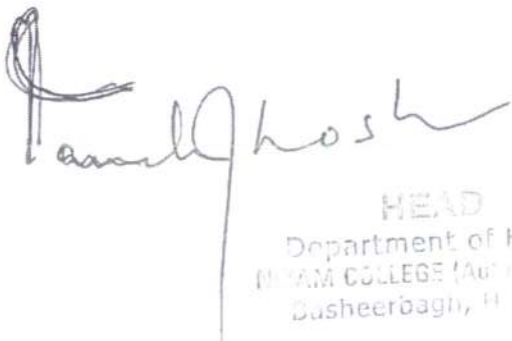 Ghosh
HEAD
Department of
NIZAM COLLEGE (Au
Basheerbagh, H